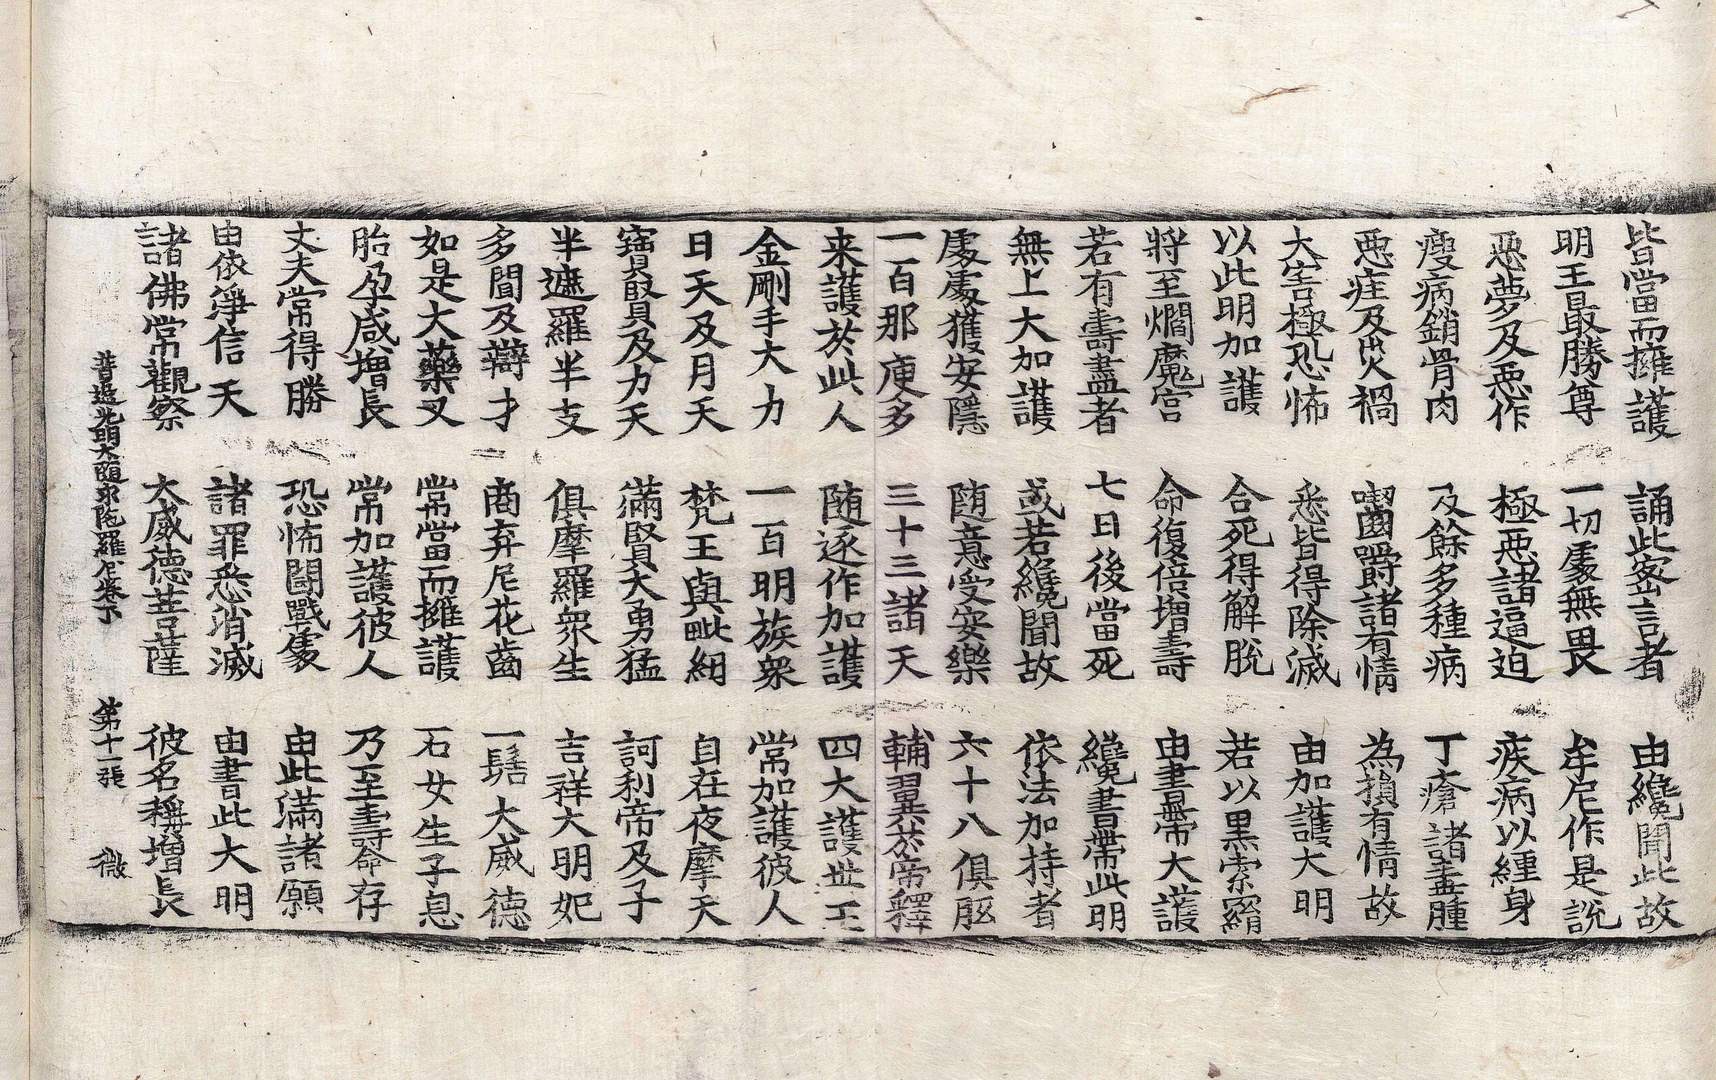 皆當而擁護　誦此密言者　由纔聞此故
明王最勝尊　一切處無畏　牟尼作是說
惡夢及惡作　極惡諸逼迫　疾病以纏身
瘦病銷骨肉　及餘多種病　丁瘡諸毒腫
惡疰及災禍　囓齧諸有情　為損有情故
大害極恐怖　悉皆得除滅　由加護大明
以此明加護　合死得解脫　若以黑索罥
將至爓魔宮　命復倍增壽　由書帶大護
若有壽盡者　七日後當死　纔書帶此明
無上大加護　或若纔聞故　依法加持者
處處獲安隱　隨意受安樂　六十八俱胝
一百那庾多　三十三諸天　輔翼於帝釋
来護於此人　隨逐作加護　四大護世王
金剛手大力　一百明族衆　常加護彼人
日天及月天　梵王與毗紐　自在夜摩天
寶賢及力天　滿賢大勇猛　訶利帝及子
半遮羅半支　俱摩羅衆生　吉祥大明妃
多聞及辯才　商弃尼花齒　一髻大威德
如是大藥叉　常當而擁護　石女生子息
胎孕咸增長　常加護彼人　乃至壽命存
丈夫常得勝　恐怖鬪戰處　由此滿諸願
由依淨信天　諸罪悉消滅　由書此大明
諸佛常觀察　大威德菩薩　彼名稱增長
普遍光明大隨求陁羅尼卷下　第十一張　微